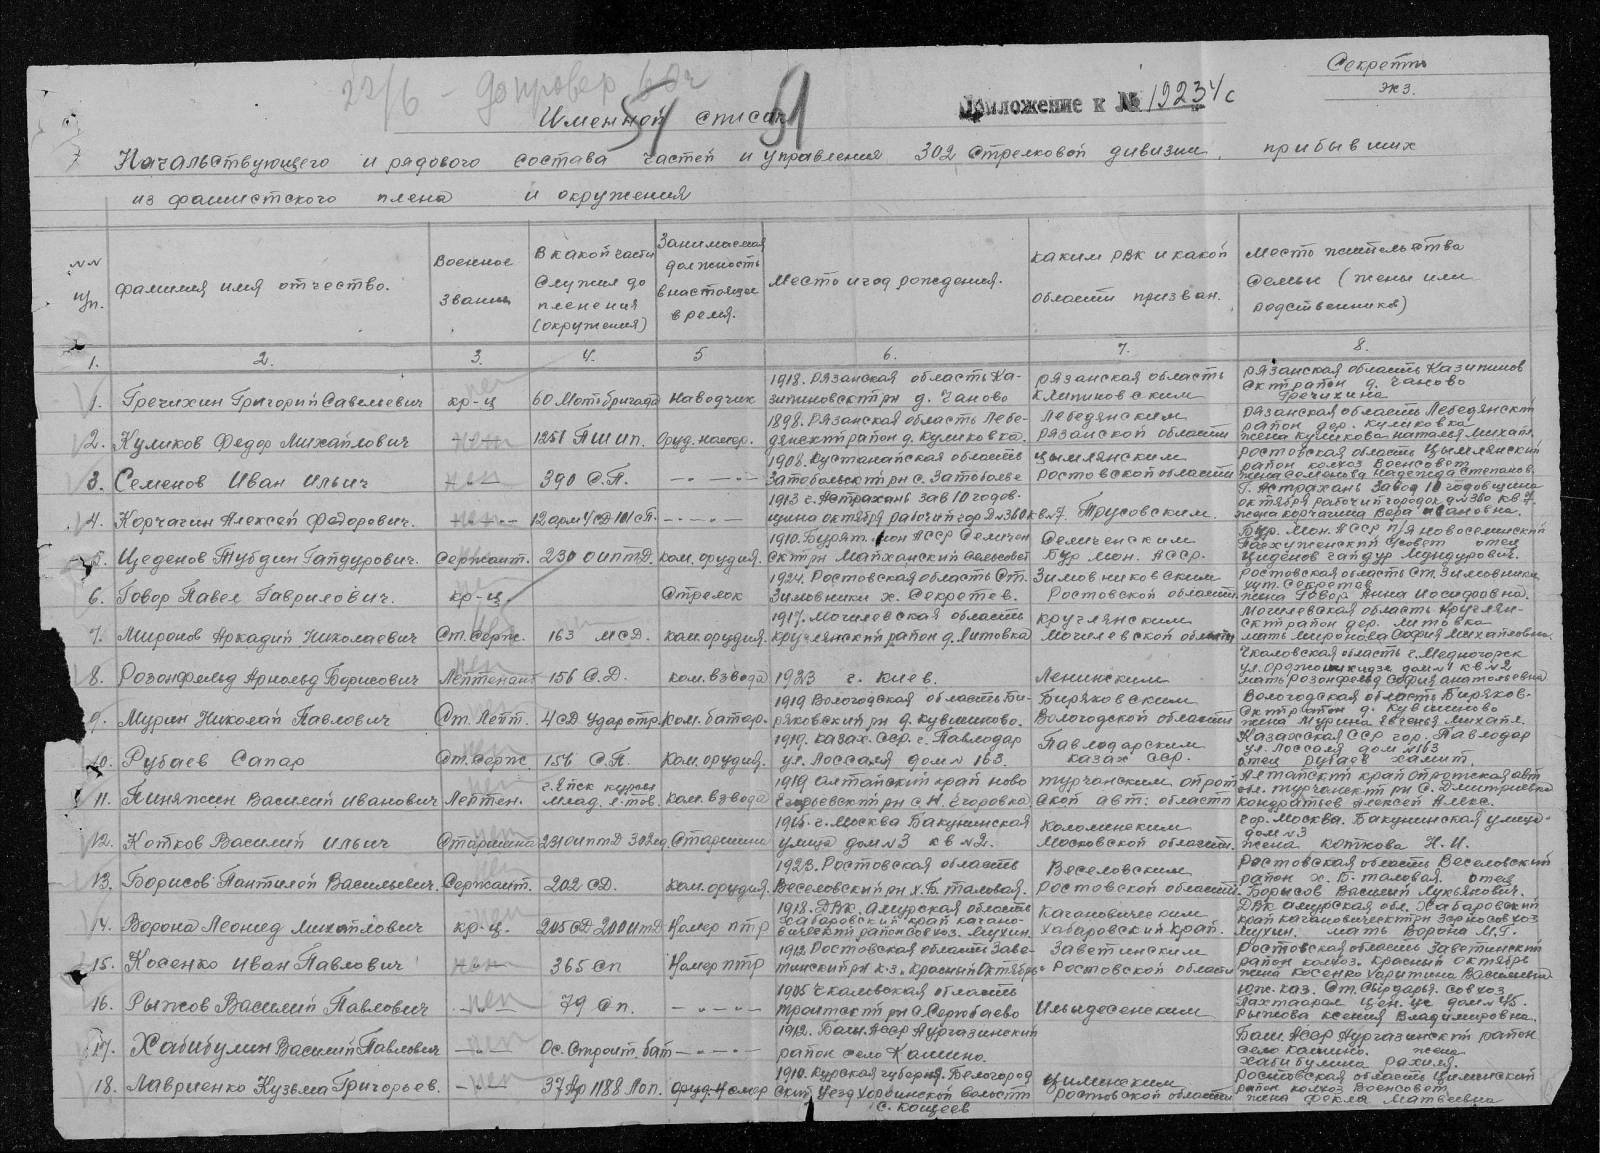 Секретн
экз.
22/6 - допровер
51
Приложение к № 19234с
Именной список
Начальствующего и рядового состава частей и управления 302 стрелковой дивизии, прибывших
из фашистского плена и окружения
№№ п/п.
фамилия имя отчество.
Военное звание
В какой части служил до пленения (окружения)
Занимаемая должность в настоящее время.
Место и год рождения.
каким РВК и какой области призван.
Место жительства семьи (жены или родственников)
1. 2. 3. 4. 5 6. 7. 8.
1. Гречихин Григорий Савельевич кр-ц 60 Мотбригада наводчик 1918. Рязанская область Ка-
зипиновский рн д. Чаново рязанская область Клипиковским рязанская область Казипинов
ский район д. Чаново Гречихина
2. Куликов Федор Михайлович —"— 1251 П Ш ИП. Оруд. номер. 1898. Рязанская область Лебе-
дянский район д. Куликовка. Лебедянским рязанской области рязанская область Лебедянский
район дер. Куликовка жена Куликова Наталья Михайл.
3. Семенов Иван Ильич —"— 390 С.П. —"— 1908. Кустанайская область
Затобольский рн с. Затоболье Цымлянским Ростовской области Ростовская область Цымлянский
район колхоз Военсовет жена Семенова Надежда Степанов.
4. Корчагин Алексей Федорович. —"— 12 арм 4СД 101 сп. —"— 1913 г. Астрахань зав 10 годов-
щина октября рабочий гор Д №360 кв №7. Трусовским. г. Астрахань завод 10 годовщина
октября рабочий городок д №360 кв. 7. жена Корчагина Вера Ивановна.
5. Цеденов Тубдин Гайдурович. Сержант. 230 ОИПТД. ком. орудия. 1910. Бурят. мон АССР Селичен
ский рн Майханский сельсовет Селиченским Бур. мон. АССР. Бур. мон. АССР п/я Новоселинский
отец Циденов Гайдур Мундурович.
6. Говор Павел Гаврилович. кр-ц. Стрелок 1924. Ростовская область Ст.
Зимовники х. Секретев. Зимовниковским Ростовской области. Ростовская область Ст. Зимовники
хут. Секретов жена Говор Анна Иосифовна.
7. Миронов Аркадий Николаевич Ст. Серж. 163 МСД. ком. орудия. 1917. Могилевская область
Круглянский район д. Литовка Круглянским Могилевской области Могилевская область Круглян-
ский район дер. Литовка мать Миронова София Михайловна.
8. Розонфельд Арнольд Борисович Лейтенант 156 С.Д. ком. взвода 1923 г. Киев. Ленинским Чкаловская область г. Медногорск
ул. Орджоникидзе дом №1 кв №2 мать Розонфельд София Анатольевна
9. Мурин Николай Павлович Ст. Лейт. 4 СД удар отр. Ком. батар. 1919 Вологодская область Би-
ряковский рн д. Кувшиново. Биряковским Вологодской области Вологодская область Биряков-
ский район д. Кувшиново жена Мурина Евгенья Михайл.
10. Рубаев Сапар Ст. Серж. 156 С.П. Ком. орудия. 1919. Казах. ССР. г. Павлодар
ул. Лоссаля дом № 163. Павлодарским казах ССР. Казахская ССР гор. Павлодар
ул. Лоссаля дом №163 отец Рубаев Хамит.
11. Пиняжин Василий Иванович Лейтен. г. Ейск курсы млад. л-тов. ком. взвода 1919 Алтайский край ново
Егорьевский рн с. Н. Егоровка турчанским ойрот ской авт. области Алтайский край ойротская авт
обл. турчанский рн с. Дмитриевка Кондратьев Алексей Алекс.
12. Котков Василий Ильич Старшина 231 ОИПТД 302 сд. Старшина 1915. г. Москва Бакунинская
улица дом №3 кв №2. Коломенским Московской области. гор. Москва. Бакунинская улица
дом №3 жена Коткова Н. И.
13. Борисов Пантилей Васильевич. Сержант. 202 СД. ком. орудия. 1923. Ростовская область
Веселовский рн х. Б. таловая. Веселовским Ростовской области. Ростовская область Веселовский
район х. Б. таловая. отец Борысов Василий Лукьянович.
14. Ворона Леонид Михайлович кр-ц. 205 СД 200 ИПТД Номер ПТР 1918. ДВК. Амурская область
Хабаровский край Кагано-
вический район совхоз. Мухин. Кагановическим Хабаровский край. ДВК Амурская обл. Хабаровский
край Кагановический рн Зерносовхоз Мухин. мать Ворона М.Г.
15. Косенко Иван Павлович —"— 365 сп Номер ПТР 1912 Ростовская область Заве-
тинский рн к-з. "Красный Октябрь" Заветинским Ростовской области Ростовская область Заветинский
район колхоз. Красный октябрь жена Косенко Харитина Васильевна
16. Рыжов Василий Павлович —"— 79 Сп. —"— 1905 Чкаловская область
троитский рн с. Сержбаево Ильидесенским юж. каз. Ст. Сырдарья. совхоз
Пахтаорал дом №45. Рыжова Ксения Владимировна.
17. Хабибулин Василий Павлович —"— Ос. Строит. бат —"— 1912. Баш. АССР Аургазинский
район село Кашино. Баш. АССР Аургазинский район
село Кашино. жена Хабибулина Рахиля.
18. Лавриенко Кузьма Григорьев. —"— 37 Ар 1188 Лоп. Оруд. Номер 1910. Курская губорня. Белогород
ский уезд волости
с. Кощеев Цимленским Ростовской области Ростовская область Цимлинский
район колхоз Военсовет жена Фекла Матвеевна